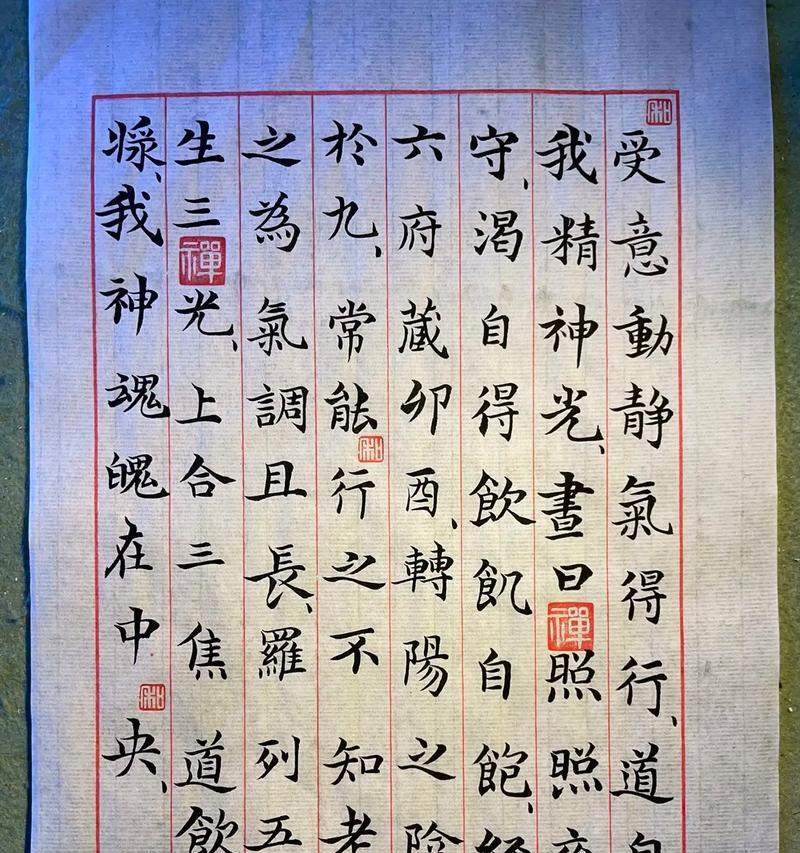 受意動静氣得行、道自
我精神光、晝日照照
守、渴自得飲飢自飽、
六府藏卯酉、轉陽之陰
於九、常能行之不知老
之為氣調且長、羅列五
生三光、上合三焦道飲
漿、我神魂魄在中央、
和
禪
和
禪
和